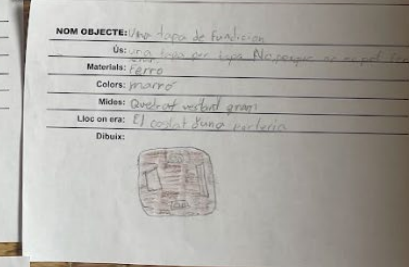 NOM OBJECTE: Una tapa de fundicion
Ús: una tapa per tapa No perque no es pot
Materials: Ferro
Colors: marró
Mides: Quadrat verdard gran
Lloc on era: El costat duna porteria
Dibuix: